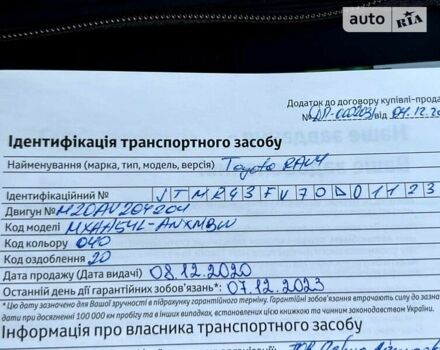 auto RIA
Додаток до договору купівлі-прода
№ від 04.12.20
Ідентифікація транспортного засобу
Найменування (марка, тип, модель, версія) Toyota RAV4
Ідентифікаційний № JTMR43FV70D01123
Двигун № M20AV204204
Код моделі MXAA54L-ANXMBW
Код кольору 040
Код оздоблення 20
Дата продажу (Дата видачі) 08.12.2020
Останній день дії гарантійних зобов'язань*: 07.12.2023
* Цю дату зазначено для Вашої зручності в підрахунку гарантійного терміну. Гарантійні зобов'язання втрачають силу до зазнач
дати при досягненні 100 000 км пробігу та в інших випадках, встановлених цією книжкою та чинним законодавством України.
Інформація про власника транспортного засобу